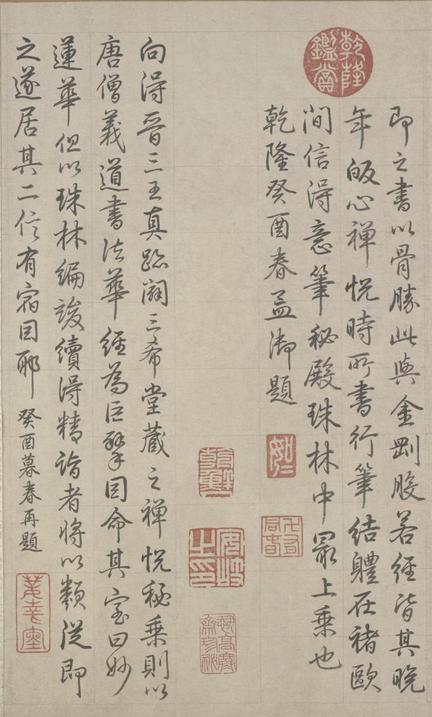 即之書以骨勝此與金剛般若經皆其晚
年皈心禪悅時所書行筆結體在褚歐
間信得意筆秘殿珠林中最上乘也
乾隆癸酉春孟御題
乾隆鑑賞
向得晉三王真跡闢三希堂藏之禪悅秘乘則以
唐僧義道書法華經為巨擘因命其室曰妙
蓮華但以珠林編竣續得精詣者將以類從即
之遂居其二信有宿因耶 癸酉暮春再題